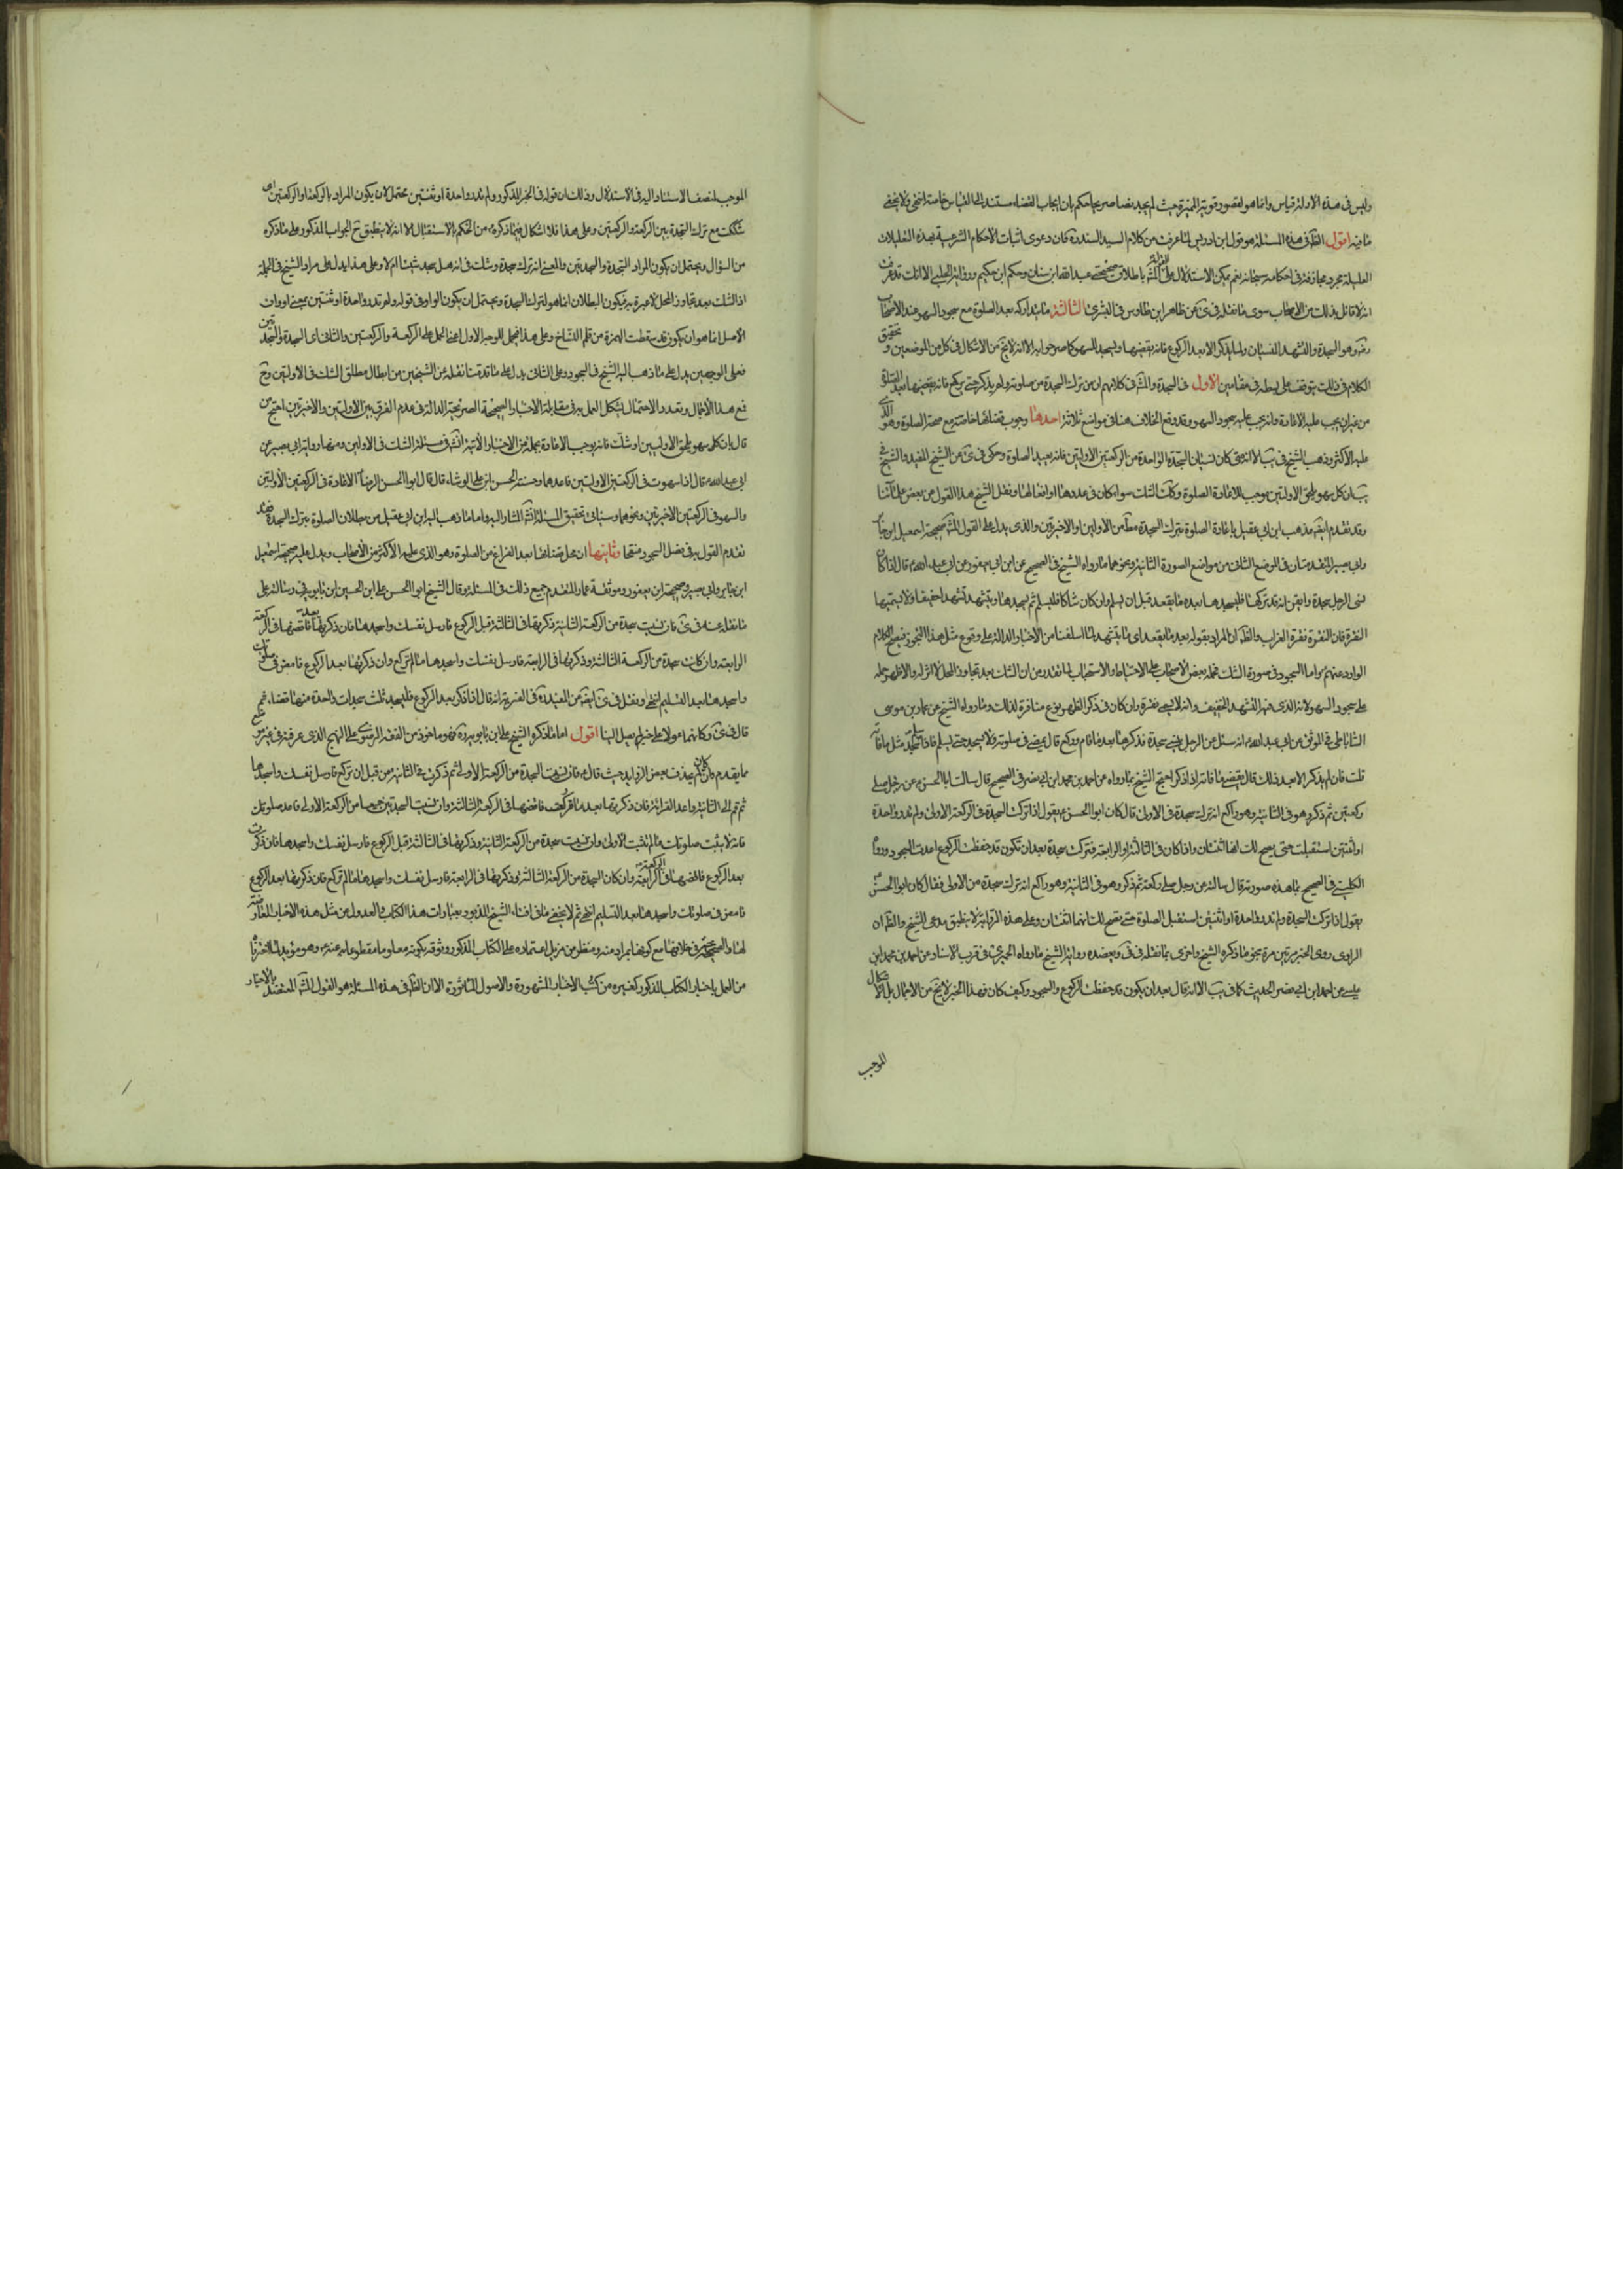 وليس في هذه الادلة قياس وانما هو لقصور قوته المميزة حيث لم يجد نصا صريحا حكم بان ايجاب القضاء مستند الى القياس خاصة انتهى ولا يخفى
ما فيه اقول الظ في هذه المسئلة هو قول ابن ادريس لما عرفت من كلام السيد السند ره فان دعوى اثبات الاحكام الشرعية بهذه التعليلات
العليلة مجرد مجازفة في احكامه سبحانه نعم يمكن الاستدلال على المش باطلاق صحيحتي عبد الله ابن سنان وحكم ابن حكيم ورواية الحلبي الا انك قد عرفت
انه لا قائل بذلك من الاصحاب سوى ما نقله في عن ظاهر ابن طاوس في البشرى الثالثة ما يتدارك بعد الصلوة مع سجود السهو عند الاصحاب
وهو السجدة والتشهد المنسيان ولما يذكر الا بعد الركوع فانه يقضيهما ويسجد للسهو كما صرحوا به الا انه لا يخ من الاشكال في كل من الموضعين وتحقيق
الكلام في ذلك يتوقف على بسطه في مقامين الاول في السجدة والمش في كلامهم ان من ترك السجدة من صلوته ولم يذكر حتى يركع فانه يقضيها بعد الصلوة
من غير ان يجب عليه الاعادة وانه يجب عليه سجود السهو وقد وقع الخلاف هنا في مواضع ثلاثة احدها وجوب قضائها خاصة مع صحة الصلوة وهو الذي
عليه الاكثر وذهب الشيخ في يب الا انه متى كان نسيان السجدة الواحدة من الركعتين الاوليين فانه يعيد الصلوة وحكى في عن الشيخ المفيد والشيخ في
يب ان كل سهو يلحق الاوليين يوجب الاعادة الصلوة وكك الشك سواء كان في عددها او افعالها ونقل الشيخ هذا القول عن بعض علمائنا
وقد تقدم ايض مذهب ابن ابي عقيل باعادة الصلوة بترك السجدة مط من الاوليين او الاخيرتين والذي يدل على القول المش صحيحة اسمعيل ابن جابر
وابي بصير المتقدمتان في الموضع الثاني من مواضع الصورة الثانية ونحوهما ما رواه الشيخ في الصحيح عن ابن ابي يعفور عن ابي عبد الله ع قال اذا كان
نسى الرجل سجدة وايقن انه قد تركها فليسجدها بعد ما يقعد قبل ان يسلم وان كان شاكا فليسلم ثم يسجدها وليتشهد تشهدا خفيفا ولا يسميها
النقرة فان النقرة نقرة الغراب والظ ان المراد بقوله بعد ما يقعد اي ما يتشهد لما اسلفنا من الاخبار الدالة على وقوع مثل هذا التجوز في الكلام
الوارد عنهم ع واما السجود في صورة الشك فحمله بعض الاصحاب على الاحتياط والاستحباب لما تقدر من ان الشك بعد تجاوز المحل لا اثر له والاظهر حمله
على سجود السهو لانه الذي فيه التشهد الخفيف وانه لا يسمى نقرة وان كان في ذكر الظهور نوع منافرة لذلك وما رواه الشيخ عن عمار بن موسى
الساباطي في الموثق عن ابي عبد الله ع انه سئل عن الرجل ينسى سجدة فذكرها بعد ما قام وركع قال يمضي في صلوته ولا يسجد حتى يسلم فاذا سلم سجد مثل ما فاته
قلت فان لم يذكر الا بعد ذلك قال يقضي ما فاته اذا ذكر احتج الشيخ بما رواه عن احمد بن محمد ابن ابي نصر في الصحيح قال سالت ابا الحسن ع عن رجل صلى
ركعتين ثم ذكر وهو في الثانية وهو راكع انه ترك سجدة في الاولى قال كان ابو الحسن ع يقول اذا تركت السجدة في الركعة الاولى ولم تدر واحدة
او اثنتين استقبلت حتى يصح لك انها اثنتان واذا كان في الثالثة او الرابعة فتركت سجدة بعد ان تكون قد حفظت الركوع اعدت السجود ورواه
الكليني في الصحيح بما هذه صورته قال سالته عن رجل صلى ركعة ثم ذكر وهو في الثانية وهو راكع انه ترك سجدة من الاولى فقال كان ابو الحسن ع
يقول اذا تركت السجدة ولم تدر واحدة او اثنتين استقبل الصلوة حتى يصح لك انهما اثنتان وعلى هذه الرواية لا ينطبق مدعى الشيخ والظ ان
الراوي روى الخبر مرتين مرة بنحو ما ذكره الشيخ واخرى بما نقله في في ويعضده رواية الشيخ ما رواه الحميري في قرب الاسناد عن احمد بن محمد ابن
عيسى عن احمد ابن ابي نصر الحديث كما في يب الا انه قال بعد ان يكون قد حفظت الركوع والسجود وكيف كان فهذا الخبر لا يخ من الاجمال بل الاشكال
الموجب
الموجب لضعف الاستناد اليه في الاستدلال وذلك ان قوله في الخبر المذكور ولم تدر واحدة او ثنتين محتمل لان يكون المراد بالركعة او الركعتين اي
شككت مع ترك السجدة بين الركعة والركعتين وعلى هذا فلا اشكال فيما ذكره ع من الحكم بالاستقبال الا انه لا ينطبق ح الجواب المذكور على ما ذكره
من السؤال ويحتمل ان يكون المراد السجدة والسجدتين والمعنى انه ترك سجدة وشك في انه هل سجد شيئا ام لا وعلى هذا يدل على مراد الشيخ في الجملة
اذ الشك بعد تجاوز المحل لا عبرة به فيكون البطلان انما هو لترك السجدة ويحتمل ان يكون الواو في قوله ولم تدر واحدة او ثنتين بمعنى او وان
الاصل انما هو ان يكون قد سقطت الهمزة من قلم النساخ وعلى هذا يحمل للوجه الاول اعني الحمل على الركعة والركعتين والثاني اي السجدة والسجدتين
فعلى الوجهين يدل على ما ذهب اليه الشيخ في السجود وعلى الثاني يدل على ما قدمنا نقله عن الشيخين من ابطال مطلق الشك في الاوليين وح
فمع هذا الاجمال وتعدد الاحتمال يشكل العمل به في مقابلة الاخبار الصحيحة الصريحة الدالة في عدم الفرق بين الاوليين والاخيرتين احتج من
قال بان كل سهو يلحق الاوليين او شك فانه يوجب الاعادة بجملة من الاخبار الاتية انش في مسئلة الشك في الاوليين ومنها رواية ابي بصير عن
ابي عبد الله ع قال اذا سهوت في الركعتين الاوليين فاعدهما وحسنة الحسن ابن علي الوشاء قال قال ابو الحسن الرضا ع الاعادة في الركعتين الاوليين
والسهو في الركعتين الاخيرتين ونحوهما وسياتي تحقيق المسئلة انش المشار اليه واما ما ذهب اليه ابن ابي عقيل من بطلان الصلوة بترك السجدة فقد
تقدم القول به في فصل السجود منقحا وثانيها ان محل قضائها بعد الفراغ من الصلوة وهو الذي عليه الاكثر من الاصحاب ويدل عليه صحيحة اسمعيل
ابن جابر وابي بصير وصحيحة ابن يعفور وموثقة عمار المتقدم جميع ذلك في المسئلة وقال الشيخ ابو الحسن علي ابن الحسين ابن بابويه في رسالته على
ما نقله عنه في فان نسيت سجدة من الركعة الثانية وذكرتها في الثالثة قبل الركوع فارسل نفسك واسجدها فان ذكرتها بعده فاقضها في الركعة
الرابعة وان كانت سجدة من الركعة الثالثة وذكرتها في الرابعة فارسل نفسك واسجدها ما لم تركع وان ذكرتها بعد الركوع فامض في صلوتك
واسجدها بعد التسليم انتهى ونقل في ايض عن المفيد ره في الغرية انه قال اذا ذكر بعد الركوع فليسجد ثلث سجدات واحدة منها قضاء ثم
قال في وكانهما عولا على خبر لم يصل الينا اقول اما ما ذكره الشيخ علي ابن بابويه ره فهو ماخوذ من الفقه الرضوي على النهج الذي عرفته في غير موضع
مما تقدم وان كان بحذف بعض الزوايد حيث قال ع فان نسيت السجدة من الركعة الاولى ثم ذكرت في الثانية من قبل ان تركع فارسل نفسك واسجدها
ثم قم الى الثانية واعد القرائة فان ذكرتها بعد ما ركعت فاقضها في الركعة الثالثة وان نسيت السجدتين جميعا من الركعة الاولى فاعد صلوتك
فانه لا يثبت صلوتك ما لم تثبت الاولى وان نسيت سجدة من الركعة الثانية وذكرتها في الثالثة قبل الركوع فارسل نفسك واسجدها فان ذكرت
بعد الركوع فاقضها في الركعة الرابعة وان كان السجدة من الركعة الثالثة وذكرتها في الرابعة فارسل نفسك واسجدها ما لم تركع فان ذكرتها بعد الركوع
فامض في صلوتك واسجدها بعد التسليم انتهى ثم لا يخفى ما في افتاء الشيخ المذبور بعبارات هذا الكتاب والعدول عن مثل هذه الاخبار المعارضة
لها والصحيحة في خلافها مع كونها بمراد منه ومنظر من مزيد اعتماده على الكتاب المذكور وثوقه بكونه معلوما مقطوعا به عنه ع وهو مؤيد لما اخترناه
من العمل باخبار الكتاب المذكور كغيره من كتب الاخبار المشهورة والاصول الماثورة الا ان الظ في هذه المسئلة هو القول المش المعتضد بالاخبار